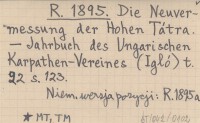 R. 1895. Die Neuver-
messung der Hohen Tátra.
— Jahrbuch des Ungarischen
Karpathen-Vereines (Igló) t.
22 s. 123.
Niem. wersja pozycji: R. 1895a
* MT, TM